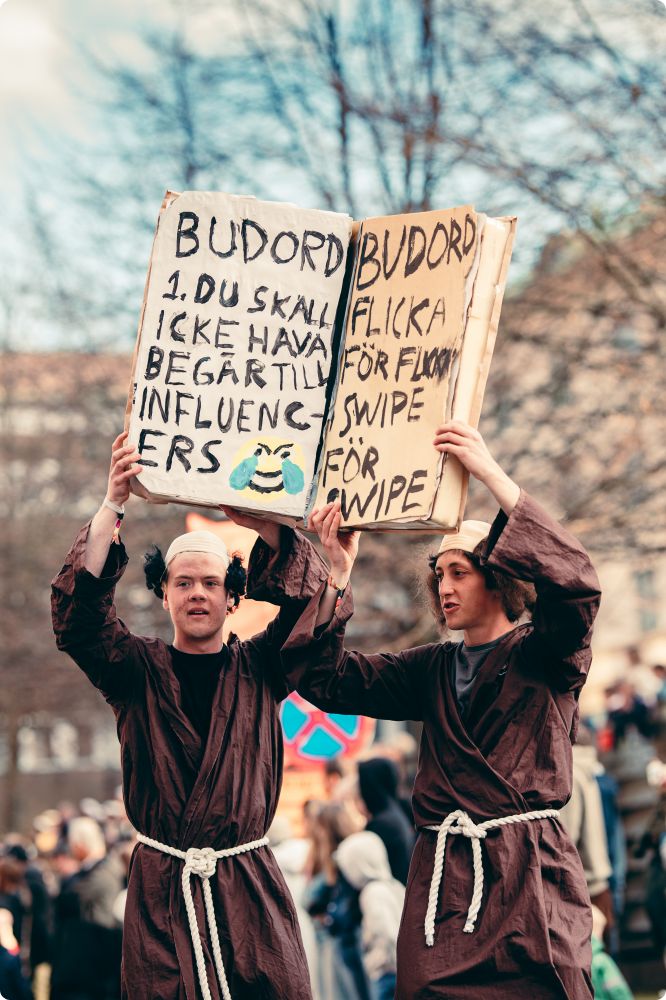 BUDORD
1. DU SKALL
ICKE HAVA
BEGÄR TILL
INFLUENC-
ERS
BUDORD
FLICKA
FÖR FLICKA
SWIPE
FÖR
SWIPE